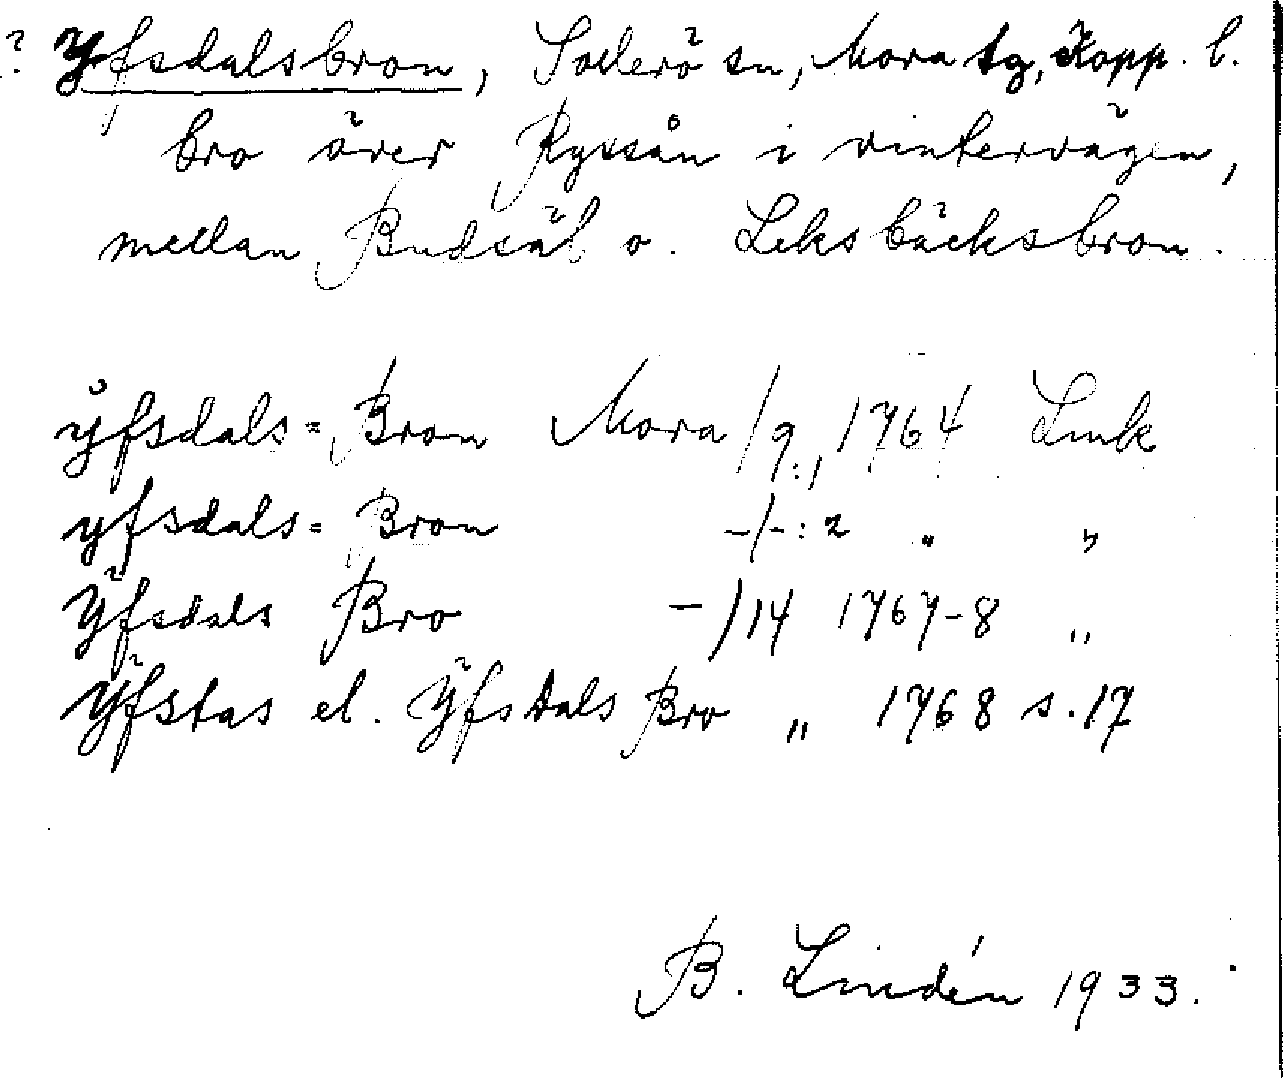 ? Yfsdalsbron, Sollerö sn, Mora tg, Kopp. l.
bro över Ryssån i vintervägen,
mellan Budsäl o. Leksbäcksbron.
ÿfsdals= Bron Mora /9:, 1764 Lmk
yfsdals= Bron -/-: 2 „ „
Ÿfsdals Bro -/14 1767-8 „
Ÿfstas el. Ÿfsdals Bro „ 1768 s. 17
B. Lindén 1933.